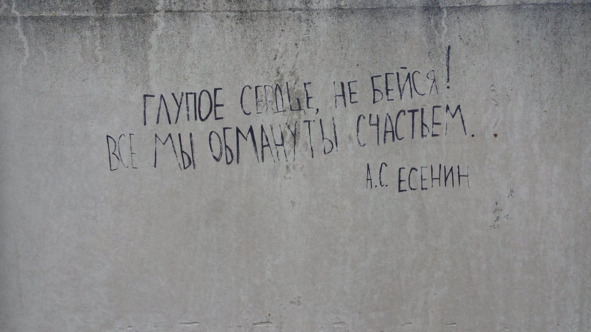 ГЛУПОЕ СЕРДЦЕ, НЕ БЕЙСЯ!
ВСЕ МЫ ОБМАНУТЫ СЧАСТЬЕМ...
А.С. ЕСЕНИН